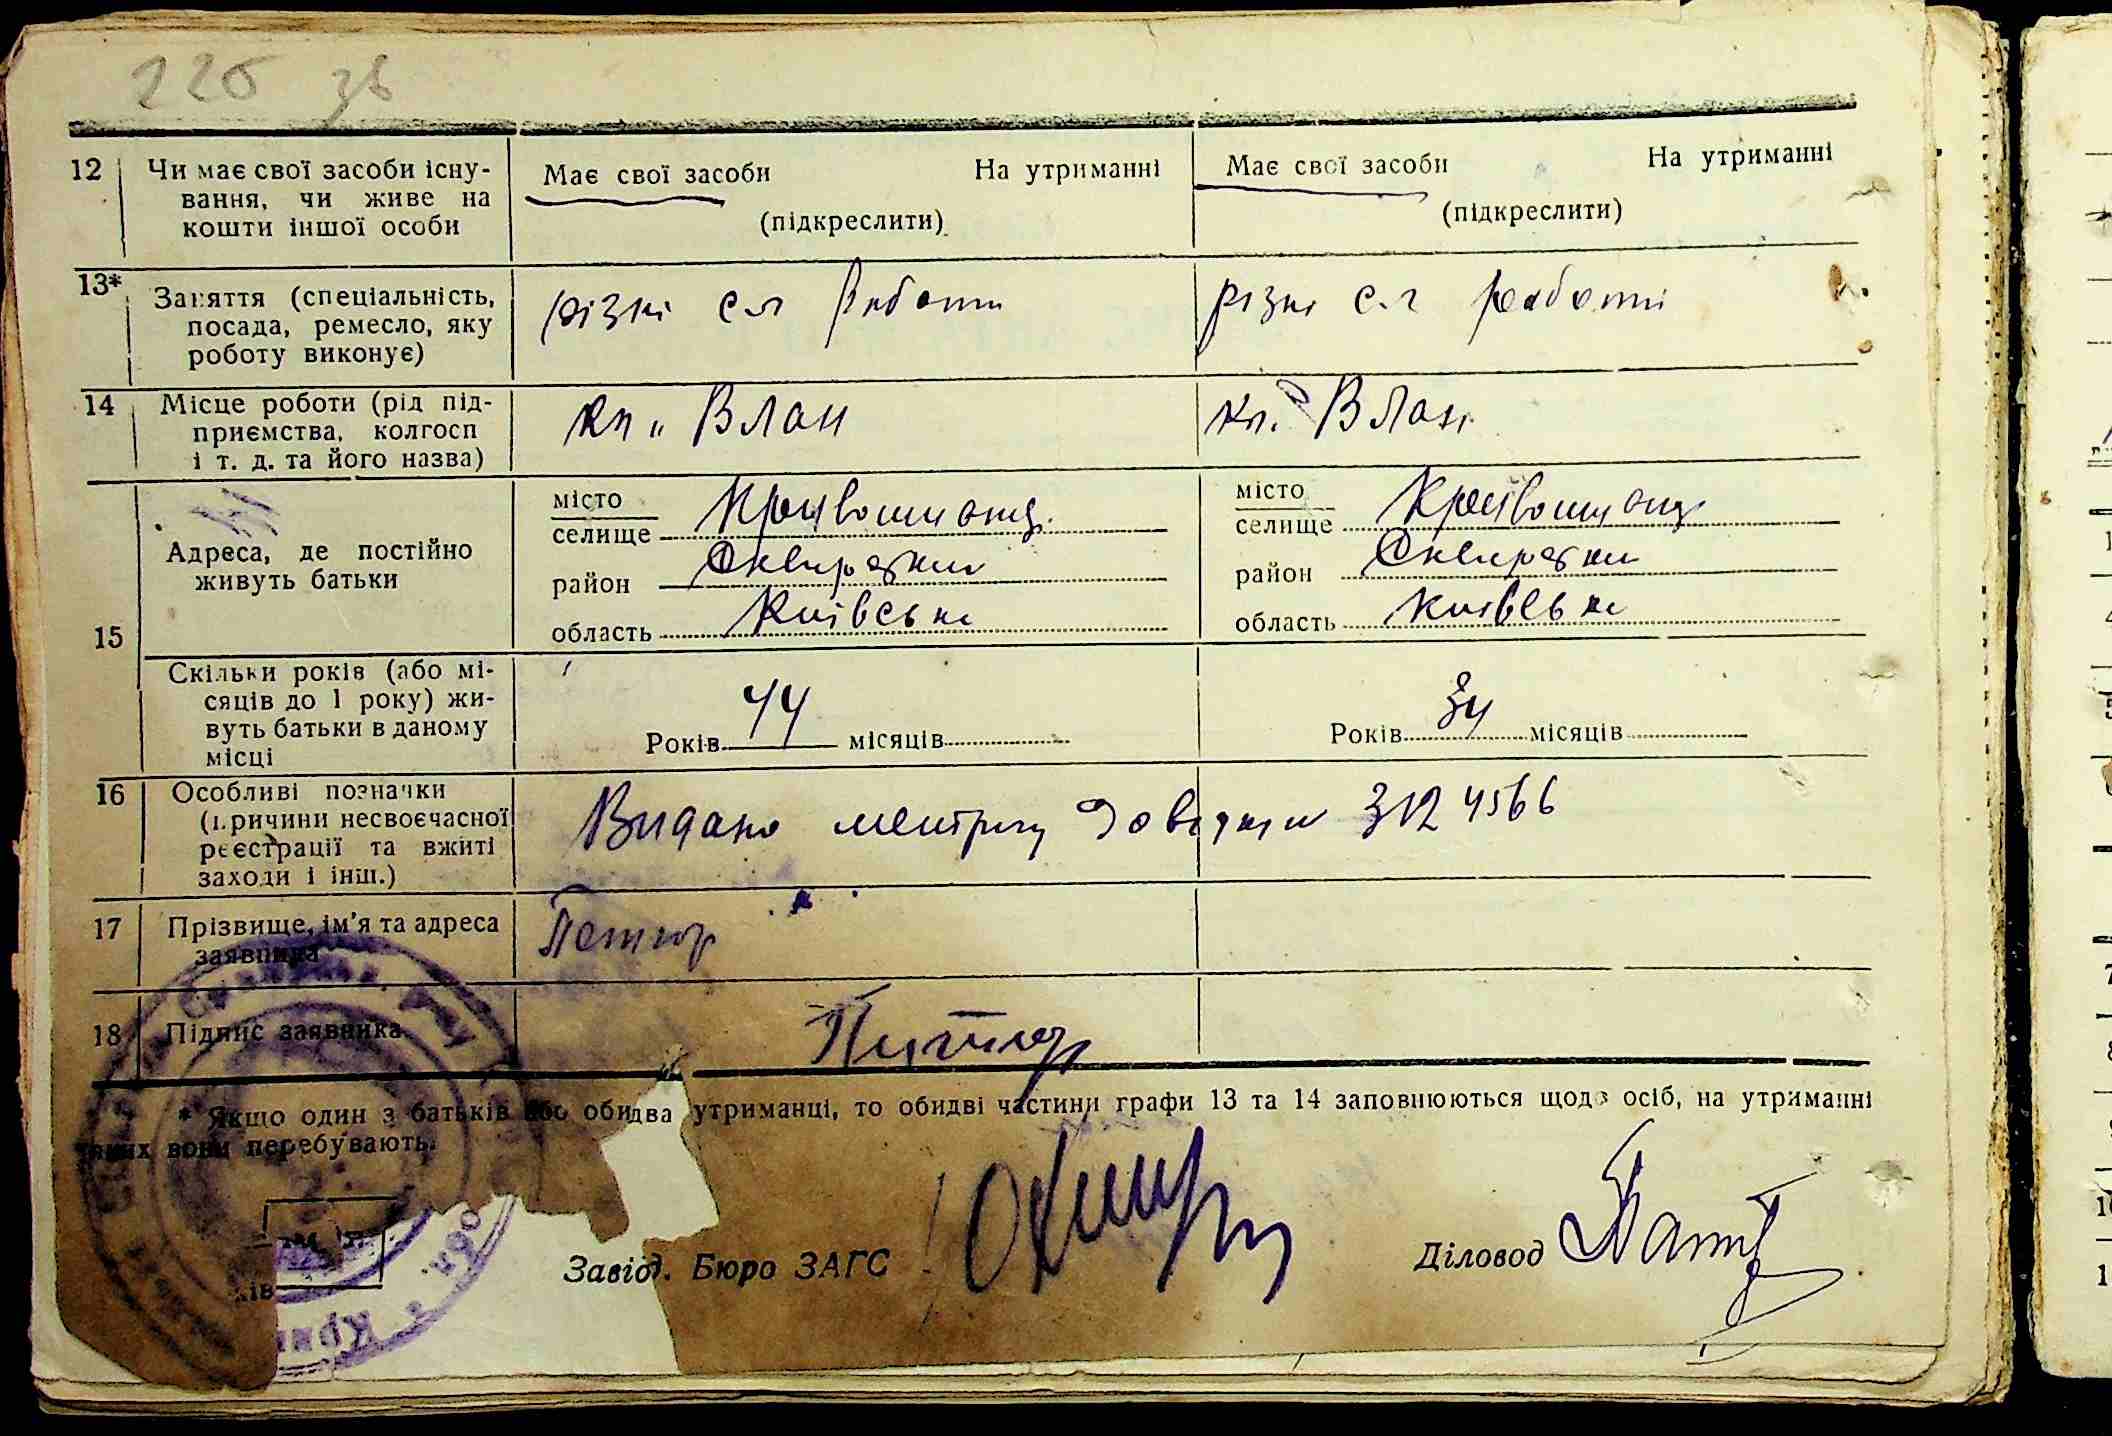 226 зв
12 Чи має свої засоби існу-
вання, чи живе на
кошти іншої особи
Має свої засоби На утриманні
(підкреслити)
Має свої засоби На утриманні
(підкреслити)
13* Заняття (спеціальність,
посада, ремесло, яку
роботу виконує)
різні с.г роботи
різні с.г роботи
14 Місце роботи (рід під-
приємства, колгосп
і т. д. та його назва)
кп.
кп.
15 Адреса, де постійно
живуть батьки
місто
селище Кривошиинц.
район Сквирський
область Київська
місто
селище Кривошиинц
район Сквирський
область Київська
Скільки років (або мі-
сяців до 1 року) жи-
вуть батьки в даному
місці
Років 44 місяців
Років 34 місяців
16 Особливі позначки
(причини несвоєчасної
реєстрації та вжиті
заходи і інш.)
Видано метрику 4566
17 Прізвище, ім'я та адреса
заявника
18 Підпис заявника
* Якщо один з батьків або обидва утриманці, то обидві частини графи 13 та 14 заповнюються щодо осіб, на утриманні
яких вони перебувають.
Завід. Бюро ЗАГС
Діловод